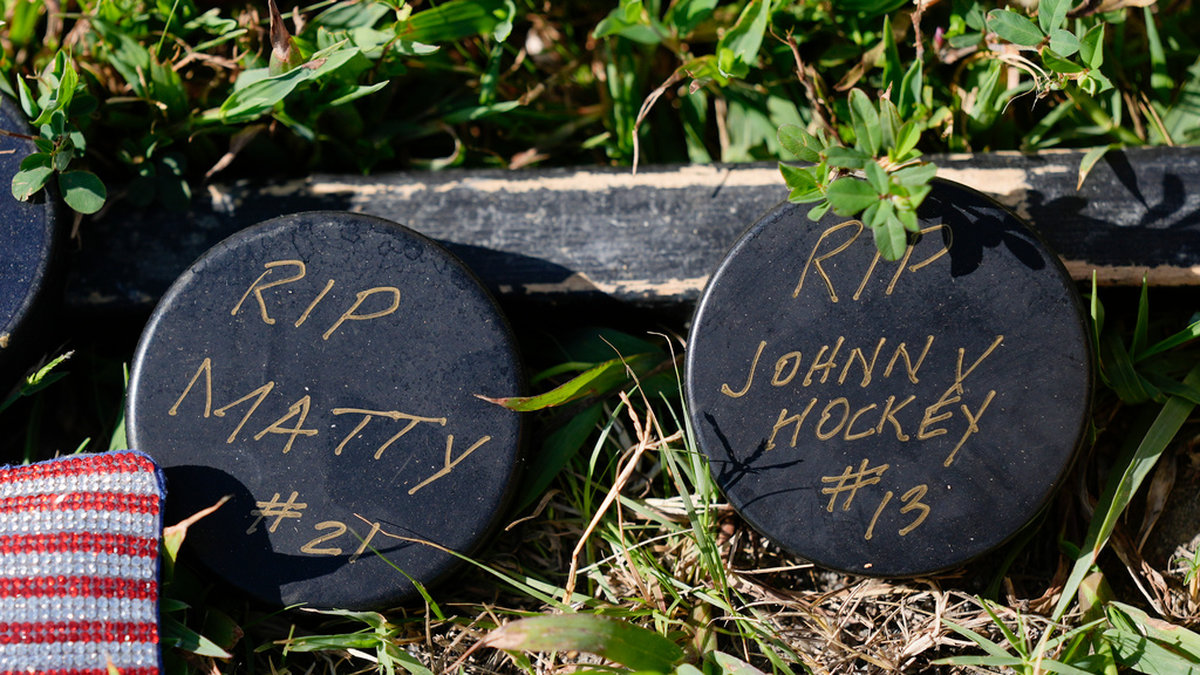 RIP
MATTY
#21
RIP
JOHNNY
HOCKEY
#13